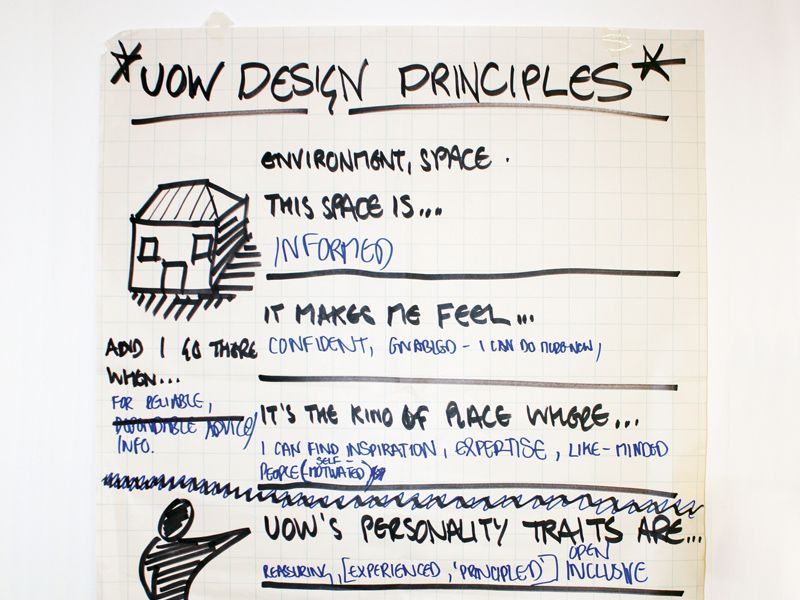 *UOW DESIGN PRINCIPLES*
ENVIRONMENT, SPACE.
THIS SPACE IS...
INFORMED
IT MAKES ME FEEL...
CONFIDENT, ENABLED - I CAN DO MORE NOW,
AND I GO THERE
WHEN...
FOR RELIABLE,
DEPENDABLE ADVICE/
INFO.
IT'S THE KIND OF PLACE WHERE...
I CAN FIND INSPIRATION, EXPERTISE, LIKE-MINDED
SELF-
PEOPLE (MOTIVATED)
UOW'S PERSONALITY TRAITS ARE...
OPEN
REASSURING, [EXPERIENCED, 'PRINCIPLED'] INCLUSIVE